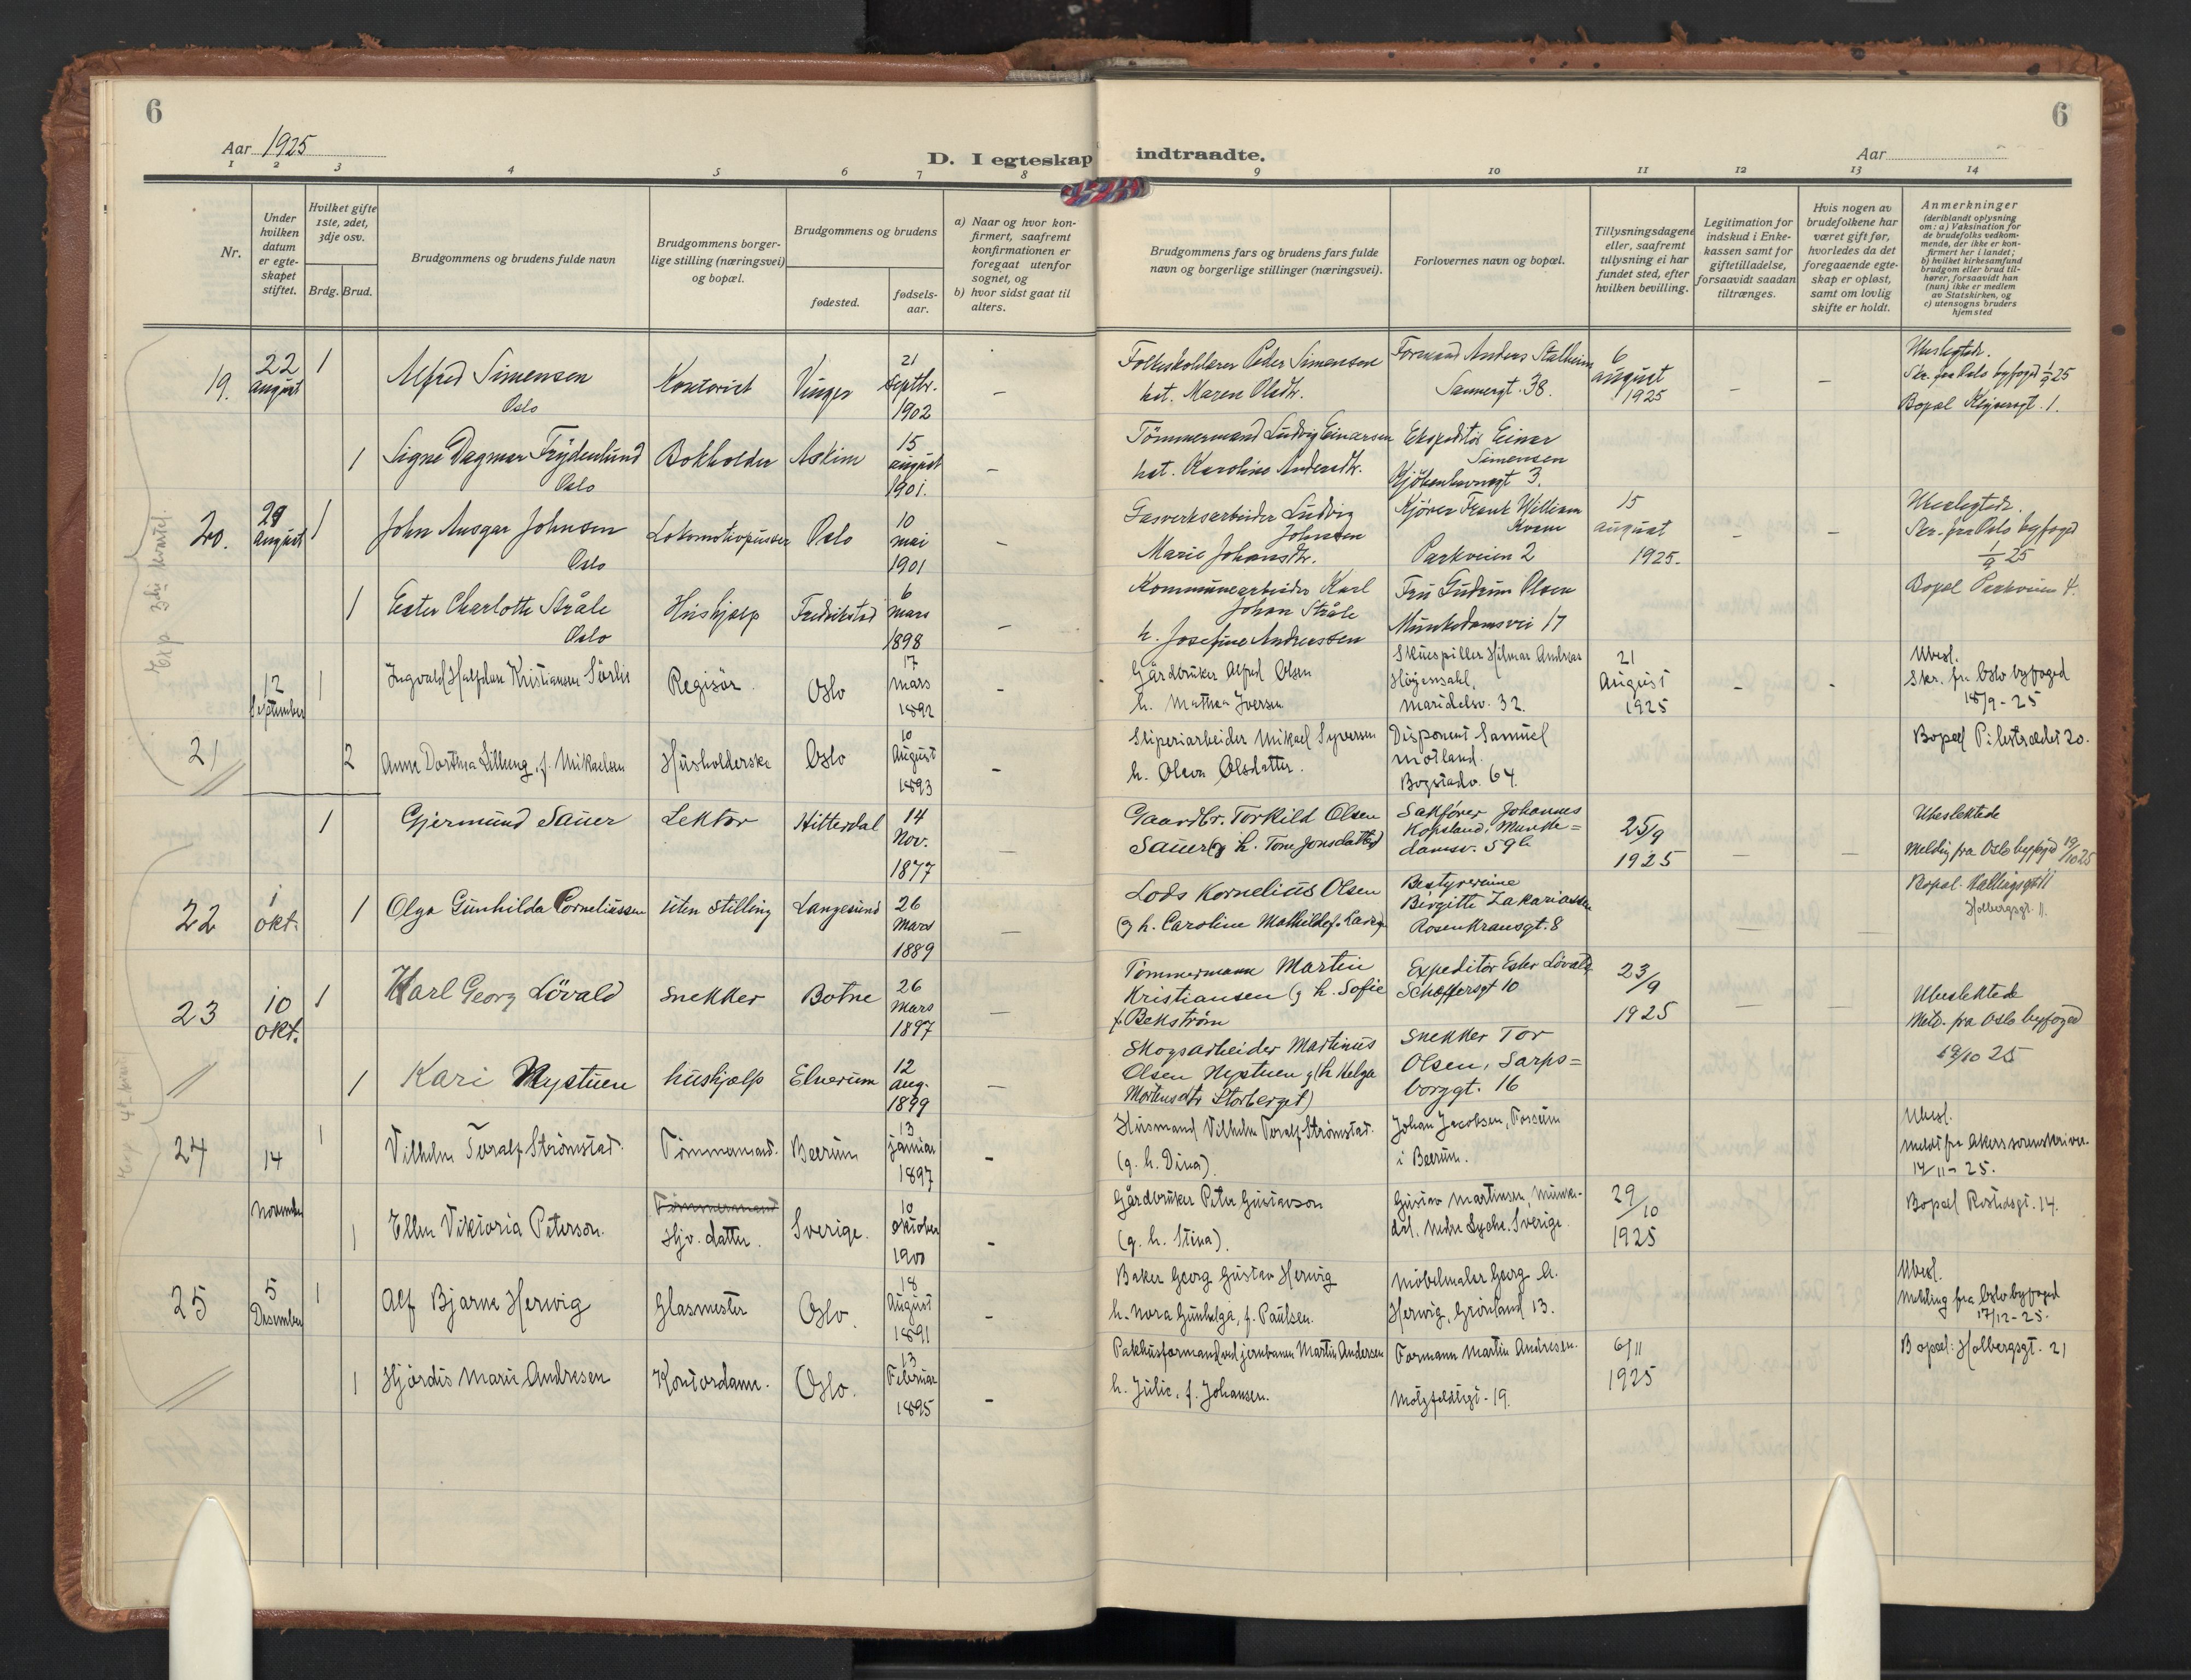 6
Aar 1925
D. I egteskap
1 2 3 4 5 6 7 8
Nr.
Under hvilken datum er egteskapet stiftet.
Hvilket gifte 1ste, 2det, 3dje osv.
Brdg. Brud.
Brudgommens og brudens fulde navn
Brudgommens borgerlige stilling (næringsvei) og bopæl.
Brudgommens og brudens
fødested.
fødselsaar.
a) Naar og hvor konfirmert, saafremt konfirmationen er foregaat utenfor sognet, og
b) hvor sidst gaat til alters.
19. 22 august 1 Alfred Simensen Oslo Kontorist Vinger 21 septbr. 1902 –
1 Signe Dagmar Frydenlund Oslo Bokholder Askim 15 august 1901. –
20. 29 august 1 John Ansgar Johnsen Oslo Lokomotivpusser Oslo 10 mai 1901 –
1 Ester Charlotte Stråle Oslo Hushjælp Fredrikstad 6 mars 1898 –
Exp 3die kvartal.
12 september 1 Ingvald Halfdan Kristiansen Sørlie Regisør. Oslo 17 mars 1892 –
21 2 Anne Dorthea Lilleng, f. Mikaelsen Husholderske Oslo 10 August 1893 –
1 Gjermund Sauer Lektor Hitterdal 14 Nov. 1877 –
22 1 okt. 1 Olga Gunhilda Corneliussen uten stilling Langesund 26 Mars 1889 –
23 10 okt. 1 Karl Georg Lövald snekker Botne 26 Mars 1897 –
1 Kari Nystuen hushjælp Elverum 12 aug. 1899 –
24 14 november 1 Vilhelm Toralf Strømstad. Tømmermand. Bærum 13 januar 1897 –
1 Ellen Viktoria Peterson. Tømmermand Hjv. datter. Sverige. 10 oktober 1900 –
25 5 Desember 1 Alf Bjarne Herwig Glasmester Oslo. 18 August 1891 –
1 Hjørdis Marie Andresen Kontordame. Oslo. 13 Februar 1895 –
6
indtraadte.
Aar
9 10 11 12 13 14
Brudgommens fars og brudens fars fulde navn og borgerlige stillinger (næringsvei).
Forlovernes navn og bopæl.
Tillysningsdagene eller, saafremt tillysning ei har fundet sted, efter hvilken bevilling.
Legitimation for indskud i Enkekassen samt for giftetilladelse, forsaavidt saadan tiltrænges.
Hvis nogen av brudefolkene har været gift før, hvorledes da det foregaaende egteskap er opløst, samt om lovlig skifte er holdt.
Anmerkninger (deriblandt oplysning om: a) Vaksination for de brudefolks vedkommende, der ikke er konfirmert her i landet; b) hvilket kirkesamfund brudgom eller brud tilhører, forsaavidt han (hun) ikke er medlem av Statskirken, og c) utensogns bruders hjemsted
Folkeskolelærer Peder Simensen
hst. Maren Olsdtr.
Formand Anders Stalheim
Sannergt. 38.
6 august 1925 – –
Ubeslegtede.
Skr. fra Oslo byfoged 1/9 25
Bopæl Keysersgt. 1.
Tömmermand Ludvig Einarsen
hst. Karoline Andersdtr.
Ekspeditör Einar Simensen
Kjöbenhavnsgt 3.
Gasverksarbeider Ludvig Johnsen
Marie Johansdtr.
Kjörer Frank William Kvam
Parkveien 2
15 august 1925. – –
Ubeslegtede.
Skr. fra Oslo byfoged
1/9 25
Bopæl Parkveien 4.
Kommunearbeider Karl Johan Stråle
h. Josefine Andreassen
Fru Gudrun Olsen
Munkedamsvei 17
Gårdbruker Alfred Olsen
h. Mathea Iversen
Skuespiller Hilmar Andreas
Höyensahl,
Maridalsv. 32.
21 August 1925 – –
Ubesl.
Skr. fra Oslo byfoged
18/9 - 25
Bopæl Pilestrædet 20.
Sliperiarbeider Mikael Syversen
h. Oleva Olsdatter.
Disponent Samuel
Motland.
Bogstadv. 64.
Gaardbr. Torkild Olsen
Sauer (g. h. Tone Jonsdatter)
Sakförer Johannes
Kopsland, Munke=
damsv. 59b
25/9 1925 – –
Ubeslektede
Melding fra Oslo byfoged 19/10 25
Bopæl. Hallingsgt 11
Holbergsgt. 11.
Lods Kornelius Olsen
(g h. Caroline Mathilde f. Larsen
Bestyrerinne
Birgitte Zakariassen
Rosenkransgt. 8
Tømmermann Martin
Kristiansen (g h. Sofie
f Bekström
Expeditör Ester Lövald,
Schæffersgt 10
23/9 1925
Ubeslektede
Meld. fra Oslo byfoged
19/10 25
Skogsarbeider Martinus
Olsen Nystuen g (h Helga
Mortensdtr Storberget)
Snekker Tor
Olsen, Sarps=
borggt. 16
Husmand Vilhelm Toralf Strømstad.
(g. h. Dina).
Johan Jacobsen, Fossum
i Bærum.
29/10 1925
Ubesl.
Meldt fra Akers sorenskriver.
14/11 - 25.
Bopæl Rostedsgt. 14.
Gårdbruker Peter Gustavson
(g. h. Stina).
Gustav Martinsen, Munke-
dal. Sverige.
Baker Georg Gustav Herwig
h. Nora Gunhelga, f. Paulsen.
Møbelmaler Georg A.
Herwig, Grønland 13.
6/11 1925
Ubesl.
Melding fra Oslo byfoged
17/12 - 25.
Bopæl: Holbergsgt. 21
Pakhusformand ved jernbanen Martin Andersen
h. Julie, f. Johansen.
Formann Martin Andresen.